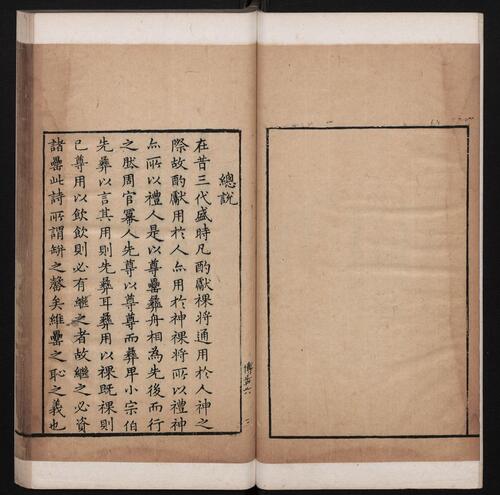 總說
在昔三代盛時凡酌獻祼將通用於人神之
際故酌獻用於人亦用於神祼將所以禮神
亦所以禮人是以尊罍彝舟相為先後而行
之然周官冪人先尊以尊尊而彝卑小宗伯
先彝以言其用則先彝耳彝用以祼既祼則
已尊用以飲飲則必有繼之者故繼之必資
諸罍此詩所謂缾之罄矣維罍之恥之義也